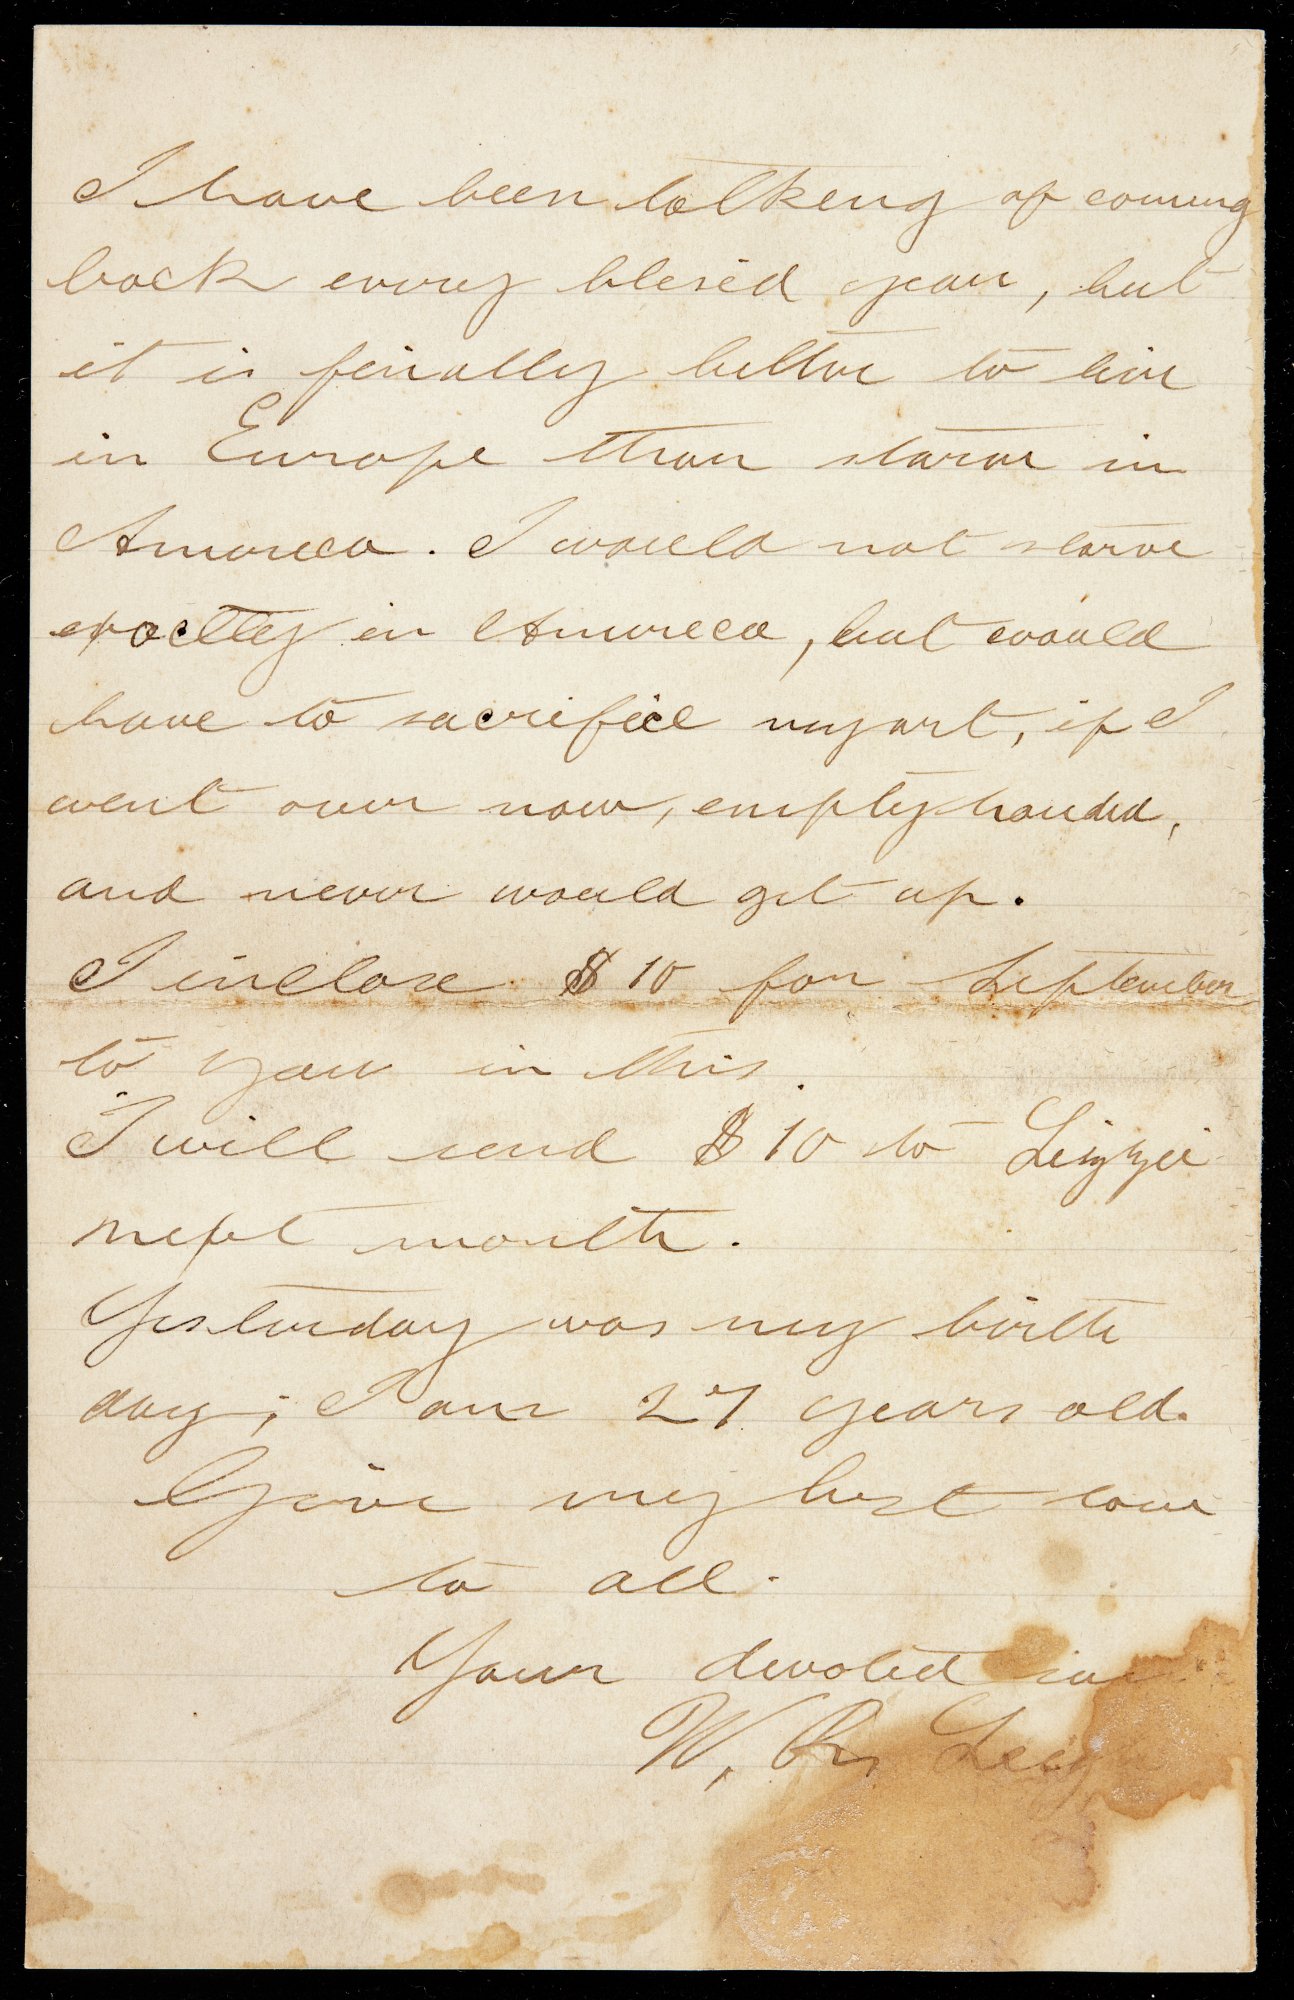 I have been talking of coming
back every blesed year, but
it is finally better to live
in Europe than starve in
America. I would not starve
exactly in America, but would
have to sacrifice my art, if I
went over now, empty handed,
and never would get up.
I inclose $10 for September
to you in this.
I will send $10 to Lizzie
next month.
Yesterday was my birth
day; I am 27 years old.
Give my best love
to all.
Your devoted son
W. R. Leigh